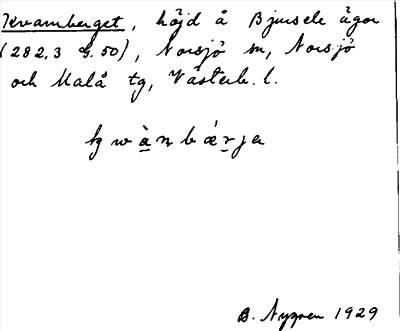 Kvamberget, höjd å Bjursele ägor
(282,3 G.50), Norsjö sn, Norsjö
och Malå tg, Västerb. l.
B. Nygren 1929